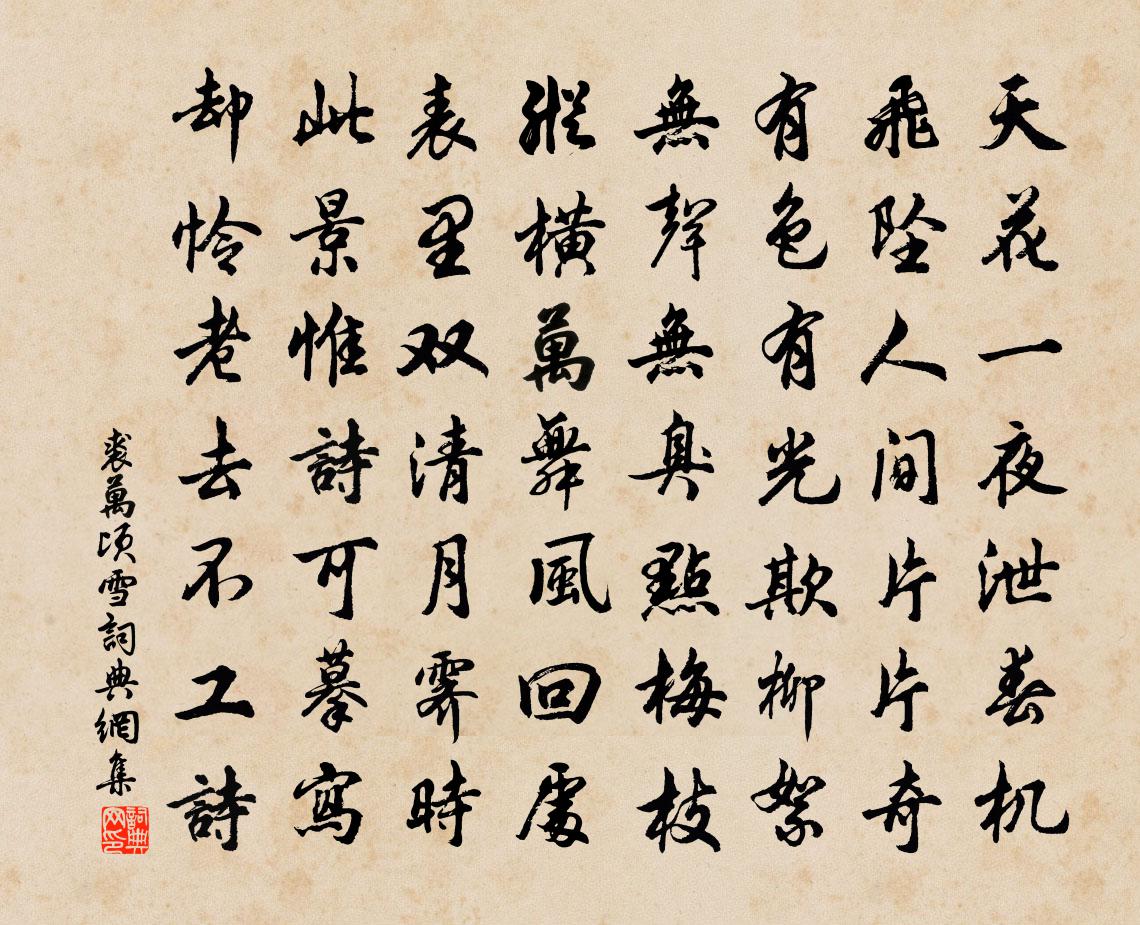 天花一夜泄春机
飛墜人间片片奇
有色有光欺柳絮
無聲無臭點梅枝
縱橫萬舞風回處
表里双清月霽時
此景惟詩可摹寫
却怜老去不工詩
裘萬頃雪詞典網集
詞典网印